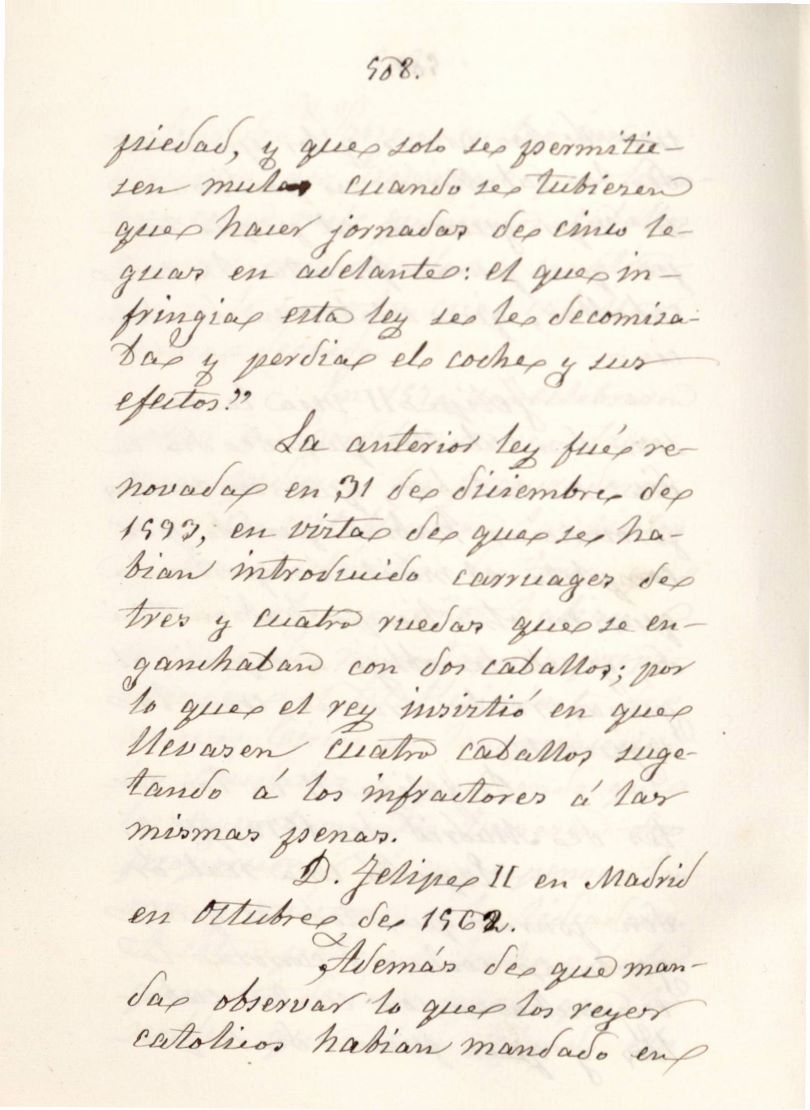 508.
piedad, y que solo se permitie-
sen mulas cuando se tubiesen
que hacer jornadas de cinco le-
guas en adelante: el que in-
fringia esta ley se le decomisa-
ba y perdia el coche y sus
efectos."
La anterior ley fué re-
novada en 31 de diciembre de
1593, en vista de que se ha-
bian introducido carruages de
tres y cuatro ruedas que se en-
ganchaban con dos caballos; por
lo que el rey insistió en que
llevasen cuatro caballos suge-
tando á los infractores á las
mismas penas.
D. Felipe II en Madrid
en Octubre de 1562.
Además de que man-
da observar lo que los reyes
catolicos habian mandado en